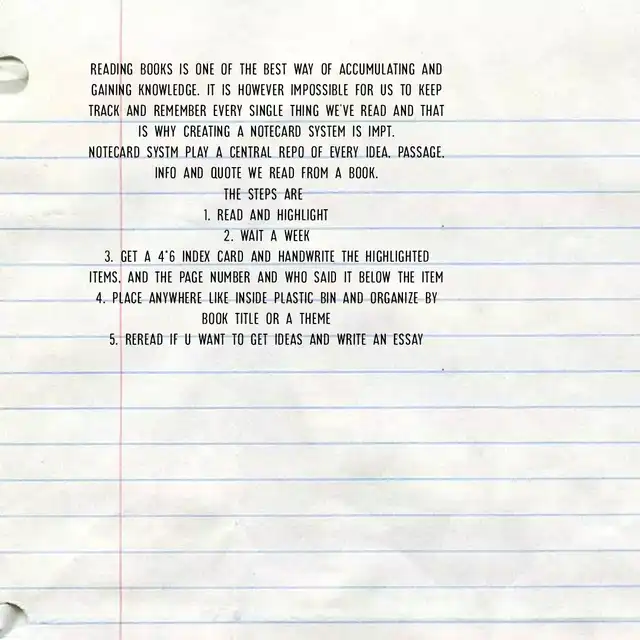 READING BOOKS IS ONE OF THE BEST WAY OF ACCUMULATING AND
GAINING KNOWLEDGE. IT IS HOWEVER IMPOSSIBLE FOR US TO KEEP
TRACK AND REMEMBER EVERY SINGLE THING WE'VE READ AND THAT
IS WHY CREATING A NOTECARD SYSTEM IS IMPT.
NOTECARD SYSTM PLAY A CENTRAL REPO OF EVERY IDEA, PASSAGE,
INFO AND QUOTE WE READ FROM A BOOK.
THE STEPS ARE
1. READ AND HIGHLIGHT
2. WAIT A WEEK
3. GET A 4*6 INDEX CARD AND HANDWRITE THE HIGHLIGHTED
ITEMS, AND THE PAGE NUMBER AND WHO SAID IT BELOW THE ITEM
4. PLACE ANYWHERE LIKE INSIDE PLASTIC BIN AND ORGANIZE BY
BOOK TITLE OR A THEME
5. REREAD IF U WANT TO GET IDEAS AND WRITE AN ESSAY